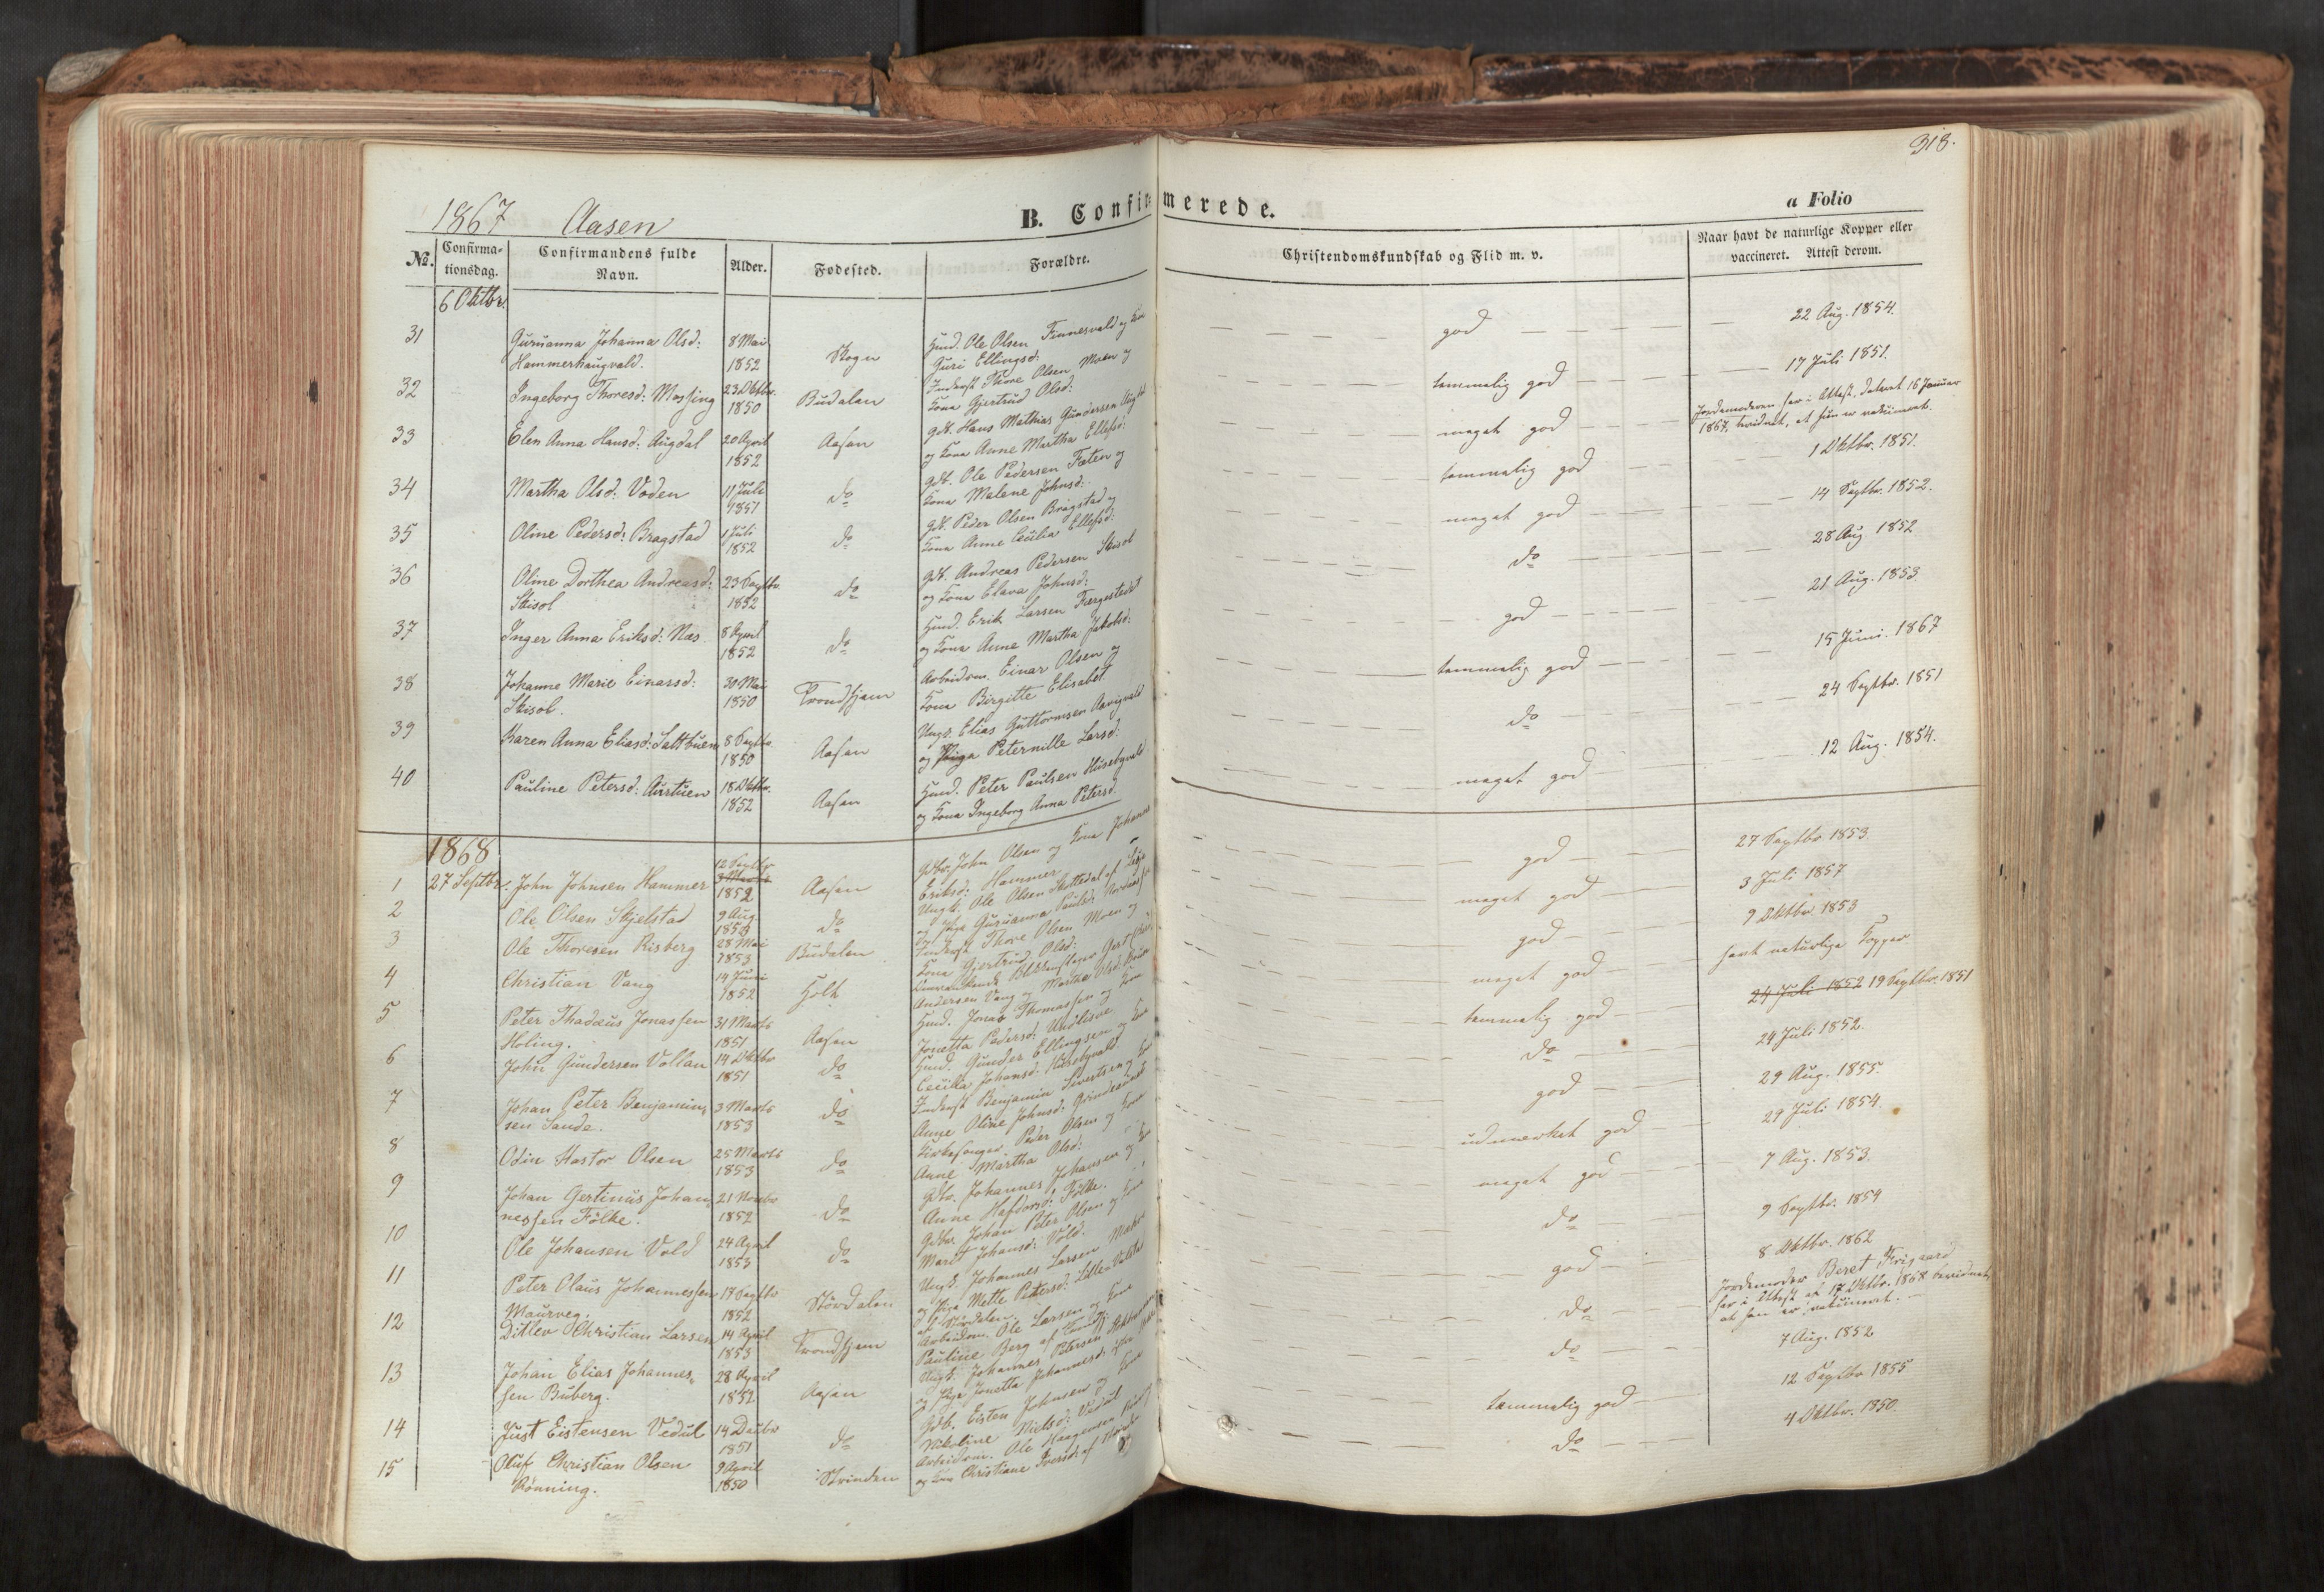 318.
1867 Aasen
B. Confirmerede.
a Folio
No.
Confirma-
tionsdag.
Confirmandens fulde
Navn.
Alder.
Fødested.
Forældre.
Christendomskundskab og Flid m. v.
Naar havt de naturlige Kopper eller
vaccineret. Attest derom.
6 Oktbr.
31 Gurianna Johanna Olsd: 8 Mai Skogn Husd. Ole Olsen Finnesvald og Kone god 22 Aug. 1854.
Hammerhaugvald. 1852 Guri Ellingsd:
32 Ingeborg Thoresd: Mossing 23 Oktbr. Budalen Inderst Thore Olsen Moen og temmelig god 17 Juli 1851.
1850 Kone Gjertrud Olsd:
33 Elen Anna Hansd: Augdal 20 April Aasen Gdb. Hans Mathias Gundersen Augdal meget god Jordemoderen har i Attest, dateret 16 Januar
1852 og Kone Anne Martha Ellefsd: 1867, bevidnet, at hun er vaksineret.
34 Martha Olsd: Voden 11 Juli do Gdb. Ole Pedersen Fæten og temmelig god 1 Oktbr. 1851.
1851 Kone Malene Johnsd:
35 Oline Pedersd: Bragstad 1 Juli do Gdb. Peder Olsen Bragstad og meget god 14 Septbr. 1852.
1852 Kone Anne Cecilia Ellefsd:
36 Oline Dorthea Andreasd: 23 Septbr. do Gdb. Andreas Pedersen Skisol do 28 Aug. 1852
Skisol 1852 og Kone Elava Johnsd:
37 Inger Anna Eriksd: Næs 8 April do Husd. Erik Larsen Færgestedet god 21 Aug. 1853
1852 og Kone Anne Martha Jakobsd:
38 Johanne Marie Einarsd: 30 Mai Trondhjem Arbeidsm. Einar Olsen og temmelig god 15 Juni. 1867
Skisol. 1850 Kone Birgitte Elisabet
39 Karen Anna Eliasd: Saltbuen 8 Septbr. Aasen Ungk. Elias Guttormsen Aavigvald do 24 Septbr. 1851
1850 og Pige Peternille Larsd:
40 Pauline Petersd: Aurtuen 18 Oktbr. Aasen Husd. Peter Paulsen Husebyvald meget god 12 Aug. 1854.
1852 og Kone Ingeborg Anna Petersd.
1868
27 Septbr.
1 John Johnsen Hammer 12 Septbr. 3 Marts 1852 Aasen Gdbr. John Olsen og Kone Johanna god 27 Septbr. 1853
Eriksd: Hammer
2 Ole Olsen Skjelstad 9 Aug. do Ungk. Ole Olsen Skottedal af meget god 3 Juli 1857
1852 og Pige Gurianna Paulsd:
3 Ole Thoresen Risberg 28 Mai Budalen Inderst Thore Olsen Moen og god 9 Oktbr. 1853
1853 Kone Gjertrud Olsd:
4 Christian Vang 14 Juni Holt Omvankende Blikkenslager Gert meget god havt naturlige Kopper
1852 Andersen Vang og Martha Olsd.
5 Peter Thadæus Jonassen 31 Marts Aasen Husd. Jonas Thomassen og Kone temmelig god 24 Juli 1852 19 Septbr. 1851
Holing. 1851 Jonetta Pedersd:
6 John Gundersen Vollan 14 Oktbr do Husd. Gunder Ellingsen og Kone do 24 Juli 1852.
1851 Cecilla Johansd: Husebyvald.
7 Johan Peter Benjamin- 3 Marts do Inderst Benjamin Sivertsen og Kone god 29 Aug. 1855.
sen Sande. 1853 Anne Oline Johnsd:
8 Odin Kastor Olsen 25 Marts do Kirkesanger Peder Olsen og Kone udmerket god 29 Juli 1854.
1853 Anne Martha Olsd:
9 Johan Gertinus Johan- 21 Novbr do Gdbr. Johannes Johansen og Kone meget god 7 Aug. 1853.
nessen Fölke. 1852 Anne Hafdorsd: Fölke.
10 Ole Johansen Vold 24 April do Gdbr. Johan Peter Olsen og Kone do 9 Septbr. 1854
1853 Marit Johansd: Vold.
11 Peter Claus Johannessen 17 Septbr Stördalen Ungk. Johannes Larsen god 8 Oktbr. 1862
Maurveg. 1852 og Pige Mette Petersd:
af Stördalen
12 Ditlev Christian Larsen 14 April Trondhjem Arbeidsm. Ole Larsen og Kone do Jordemoder Beret Krigaard
1853 Pauline Berg af har i Attest af 17 Oktbr. 1868 bevidnet
at han er vaksineret.
13 Johan Elias Johannes- 28 April Aasen Ungk. Johannes Petersen do 7 Aug. 1852
sen Buberg. 1852 og Pige Jonetta Johannesd:
14 Just Eistensen Vedul 14 Decbr do Gdb. Eisten Johnsen og Kone temmelig god 12 Septbr 1855
1851 Nikoline Nielsd: Vedul
15 Oluf Christian Olsen 9 April Strinden Arbeidsm. Ole Haagensen do 4 Oktbr. 1850
Rönning. 1850 og Kone Christiane Iversd: af